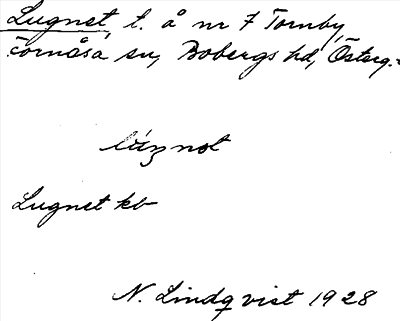 Lugnet, t. å nr 7 Tornby,
Fornåsa sn, Bobergs hd, Österg.
Lugnet kb
N. Lindqvist 1928